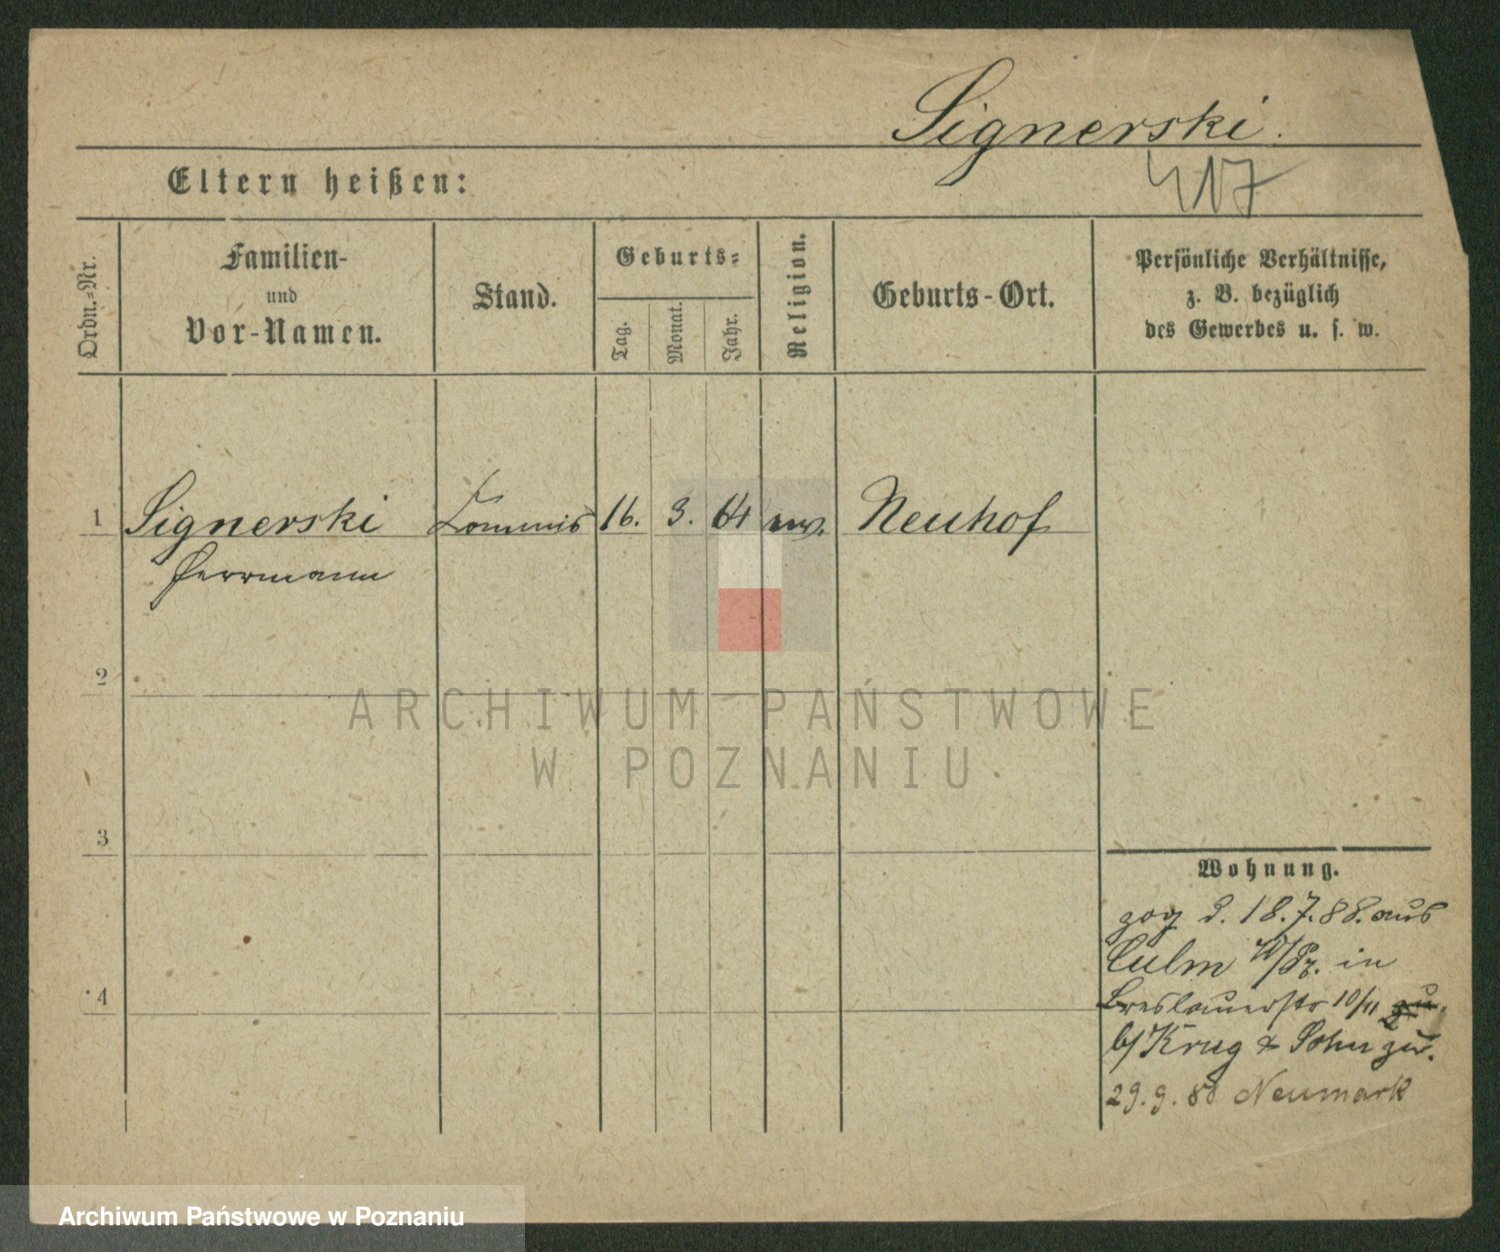 Signerski.
417
Eltern heißen:
Ordn.-Nr.
Familien-
und
Vor-Namen.
Stand.
Geburts-
Tag.
Monat.
Jahr.
Religion.
Geburts-Ort.
Persönliche Verhältnisse,
z. B. bezüglich
des Gewerbes u. s. w.
1 Signerski Commis 16. 3. 64 Neuhof
Herrmann
2
ARCHIWUM PAŃSTWOWE
W POZNANIU
3
Wohnung.
zog d. 18.7.88. aus
Culm W/Pr. in
4
Breslauerstr 10/11
b/ Krug & Sohn zu.
29.9.88 Neumark
Archiwum Państwowe w Poznaniu